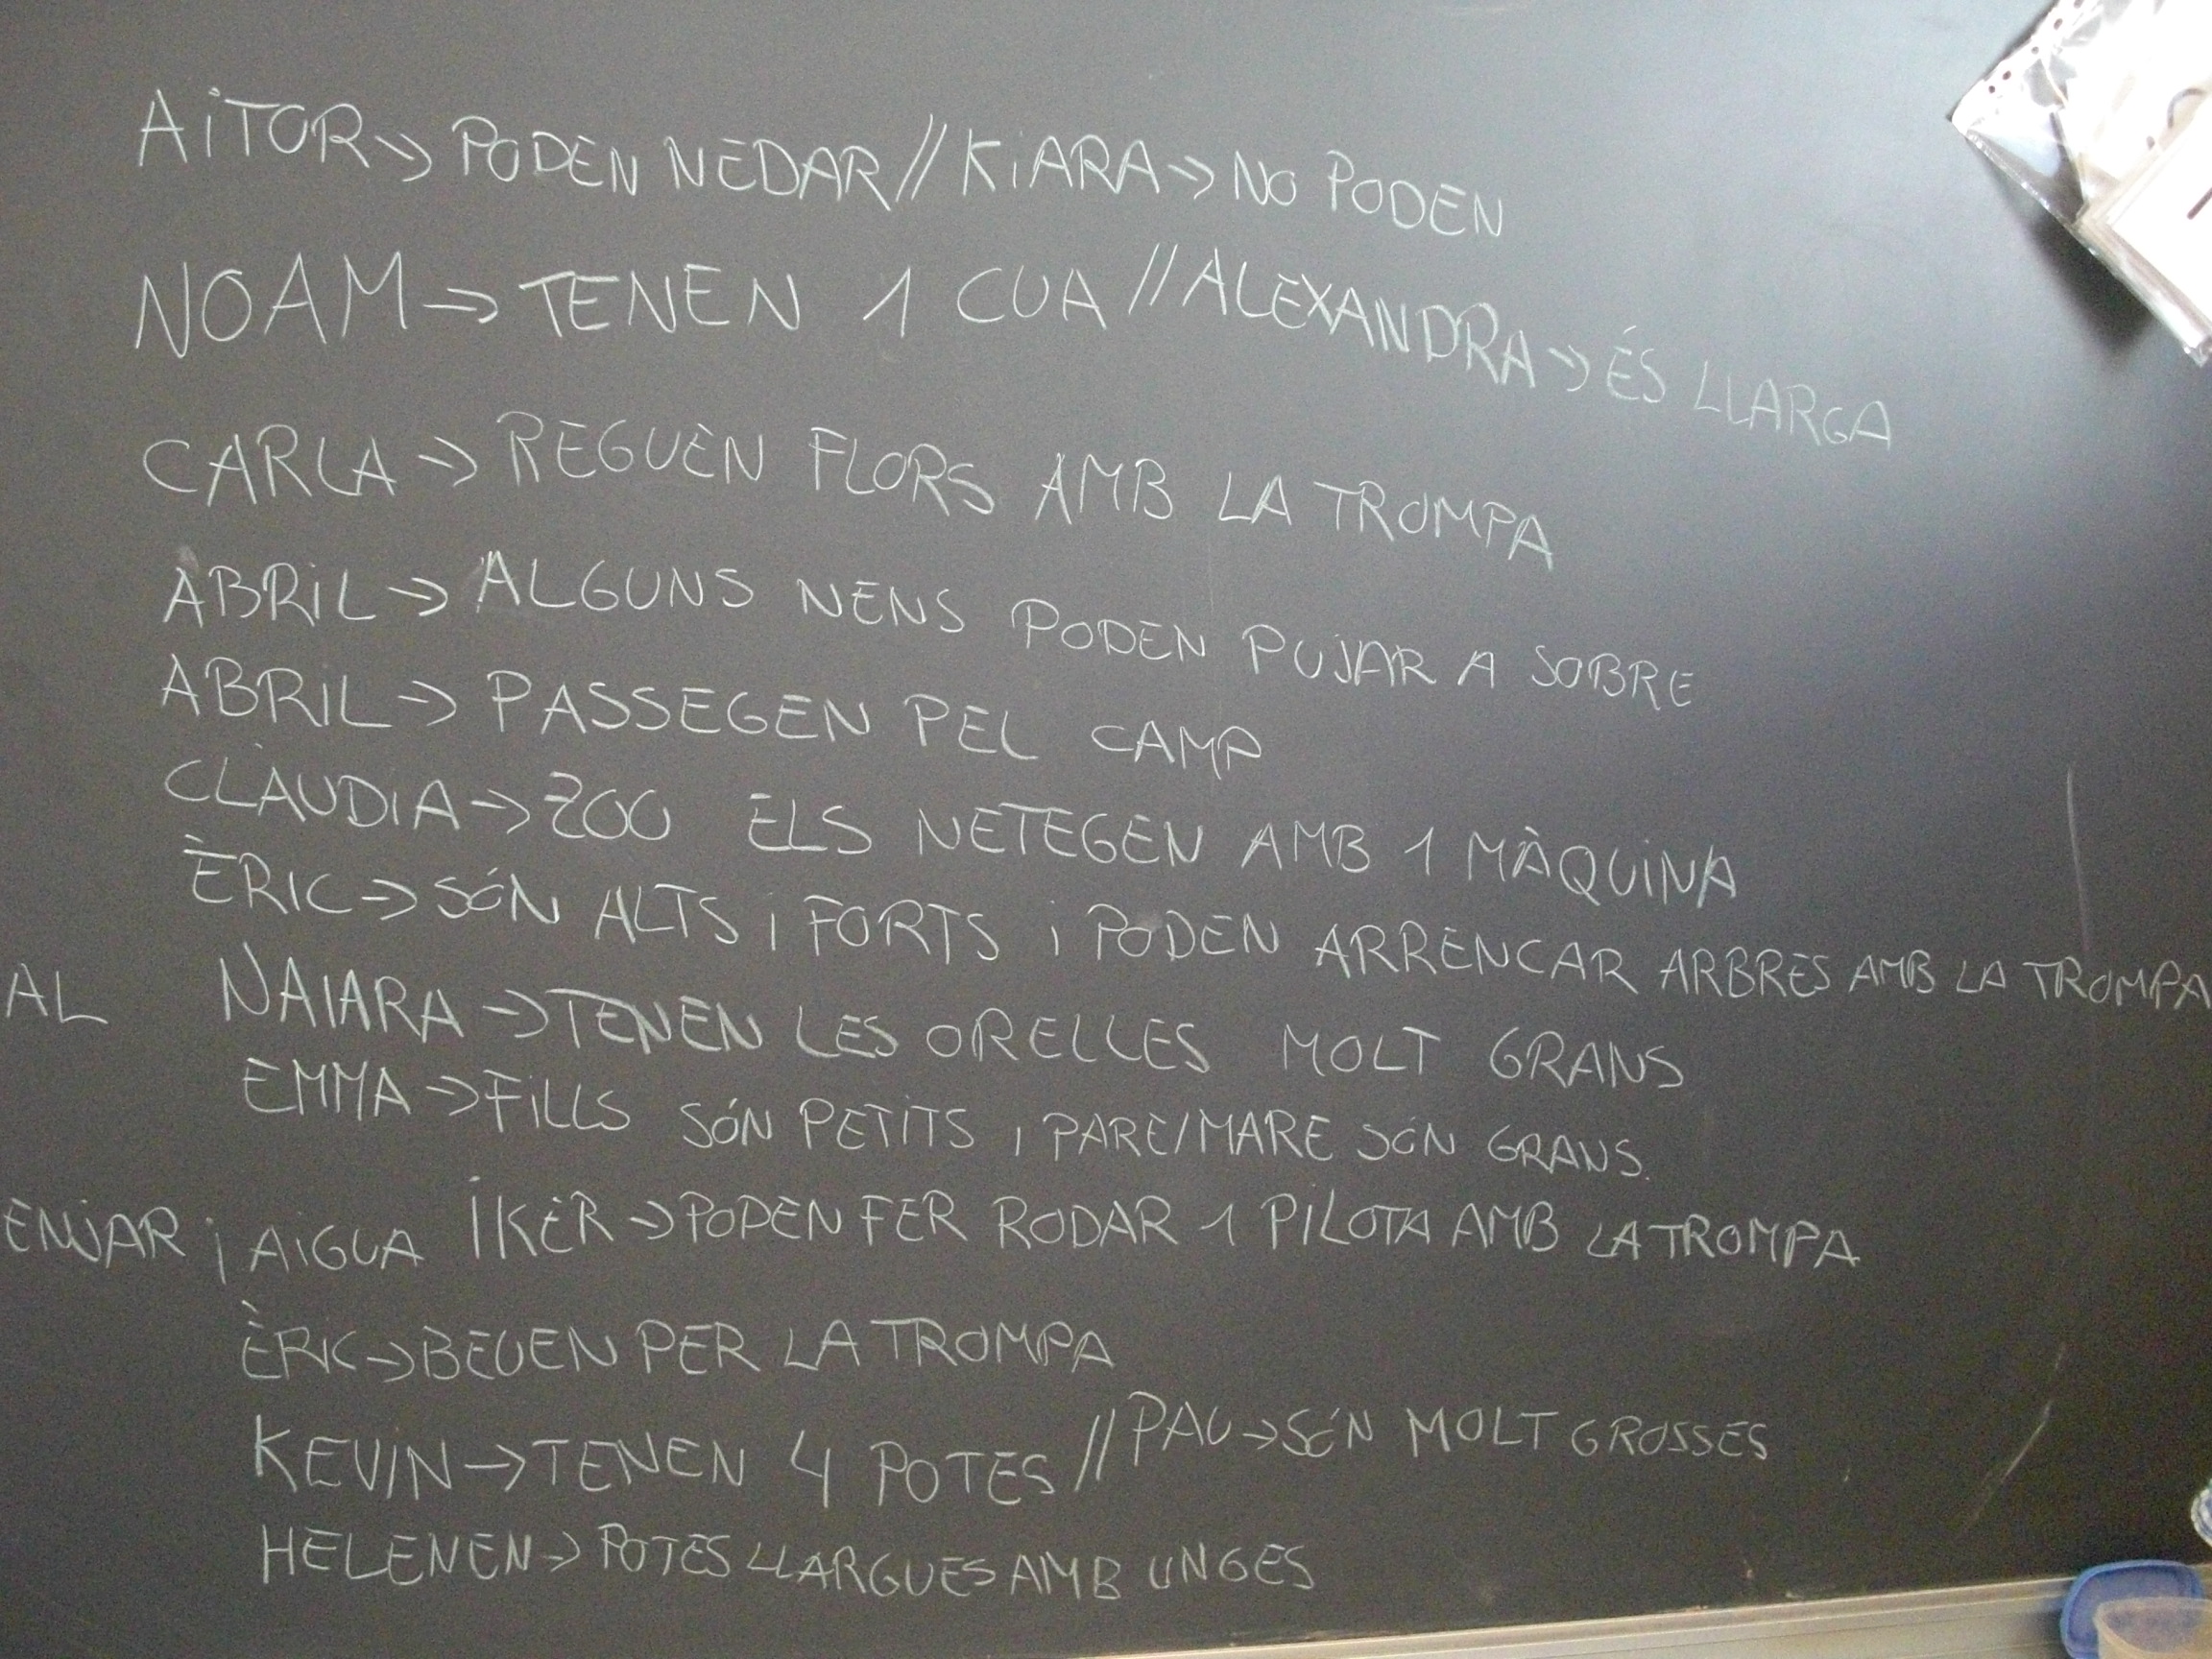 AiTOR → PODEN NEDAR // KiARA → NO PODEN
NOAM → TENEN 1 CUA // ALEXANDRA → ÉS LLARGA
CARLA → REGUEN FLORS AMB LA TROMPA
ABRiL → ALGUNS NENS PODEN PUJAR A SOBRE
ABRIL → PASSEGEN PEL CAMP
CLÀUDiA → ZOO ELS NETEGEN AMB 1 MÀQUiNA
ÈRIC → SÓN ALTS i FORTS i PODEN ARRENCAR ARBRES AMB LA TROMPA
AL NAIARA → TENEN LES ORELLES MOLT GRANS
EMMA → FiLLS SÓN PETiTS i PARE/MARE SÓN GRANS.
ENJAR i AiGUA iKER → PODEN FER RODAR 1 PILOTA AMB LA TROMPA
ÈRIC → BEUEN PER LA TROMPA
KEVIN → TENEN 4 POTES // PAU → SÓN MOLT GROSSES
HELENEN → POTES LLARGUES AMB UNGES